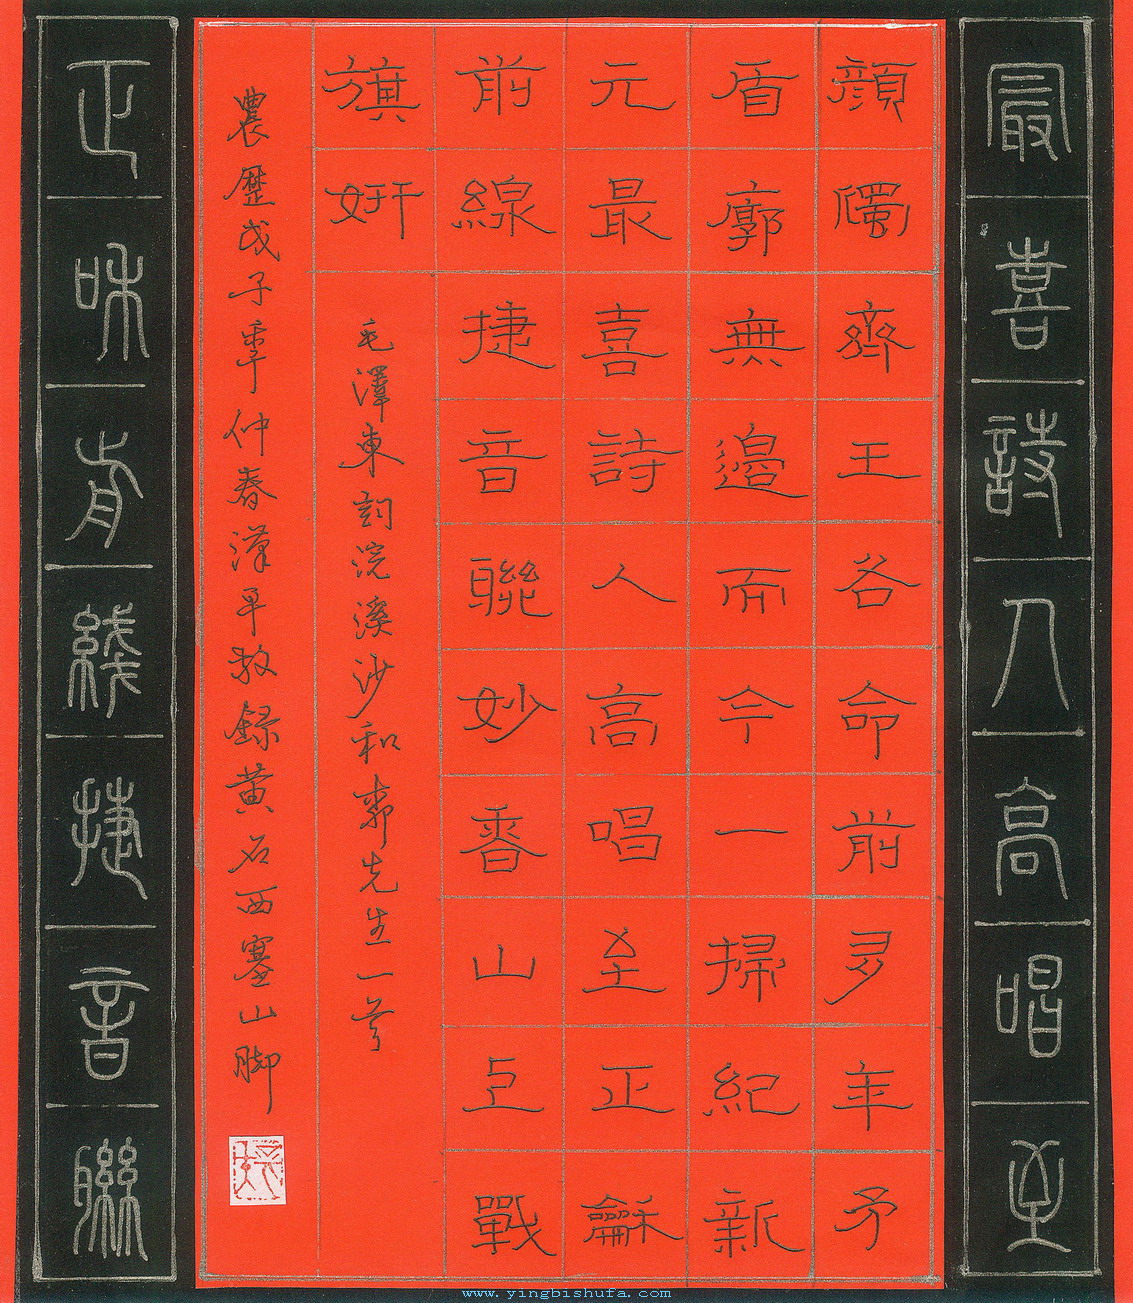 最喜詩人高唱至
顔斶齊王各命前多年矛
盾廓無邊而今一掃紀新
元最喜詩人高唱至正龢
前線捷音聯妙香山上戰
旗妍
毛澤東詞浣溪沙和先生一首
農歷戊子年仲春漢録黄石西塞山脚
正和前綫捷音聯
www.yingbishufa.com